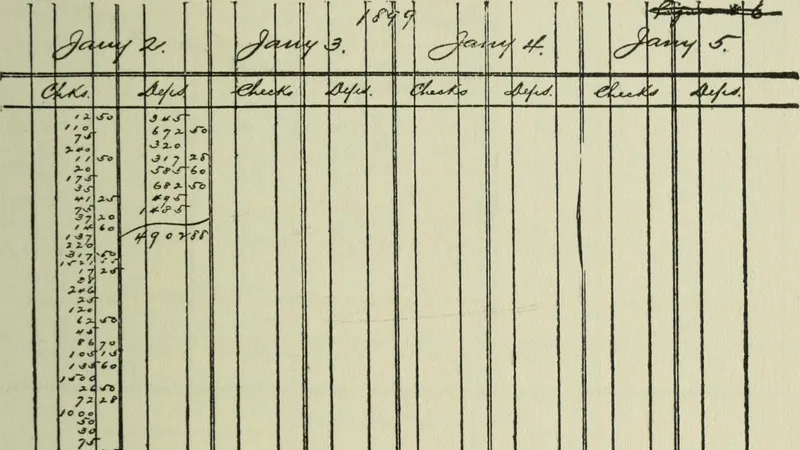 1899
Jany 2. Jany 3. Jany 4. Jany 5.
Chks. Deps. Checks Deps. Checks Deps. Checks Deps.
12 50
110
75
240
11 50
20
175
35
41 25
75
37 20
14 60
137
220
317 50
17 25
88
246
25
120
62 50
45
86 70
105 15
135 60
1500
26 50
72 28
1000
50
30
75
345
672 50
320
317 25
585 60
682 50
495
1485
4902 85